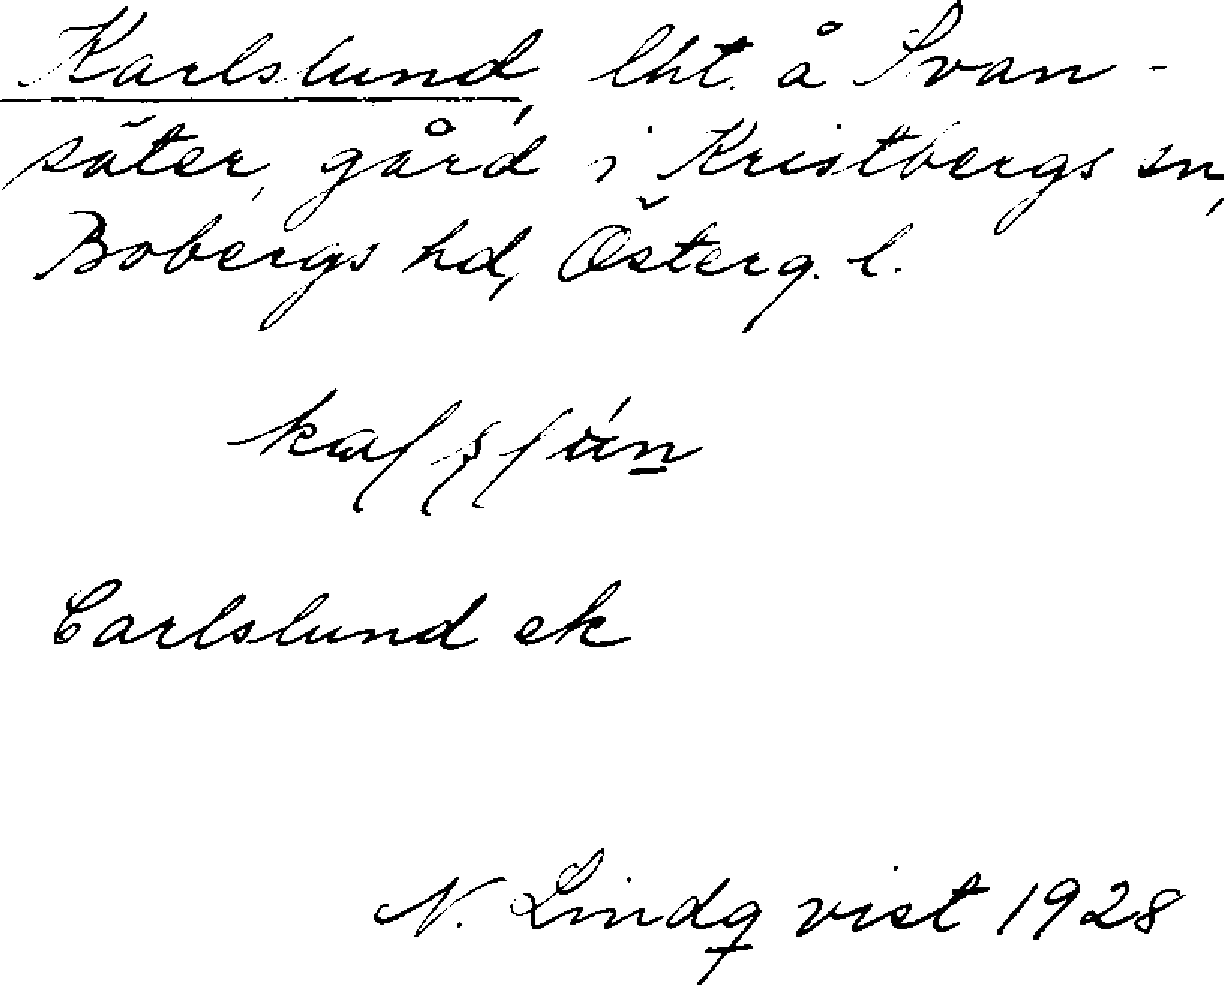 Karlslund, lht. å Svan-
säter, gård i Kristbergs sn,
Bobergs hd, Österg. l.
Carlslund ek
N. Lindqvist 1928